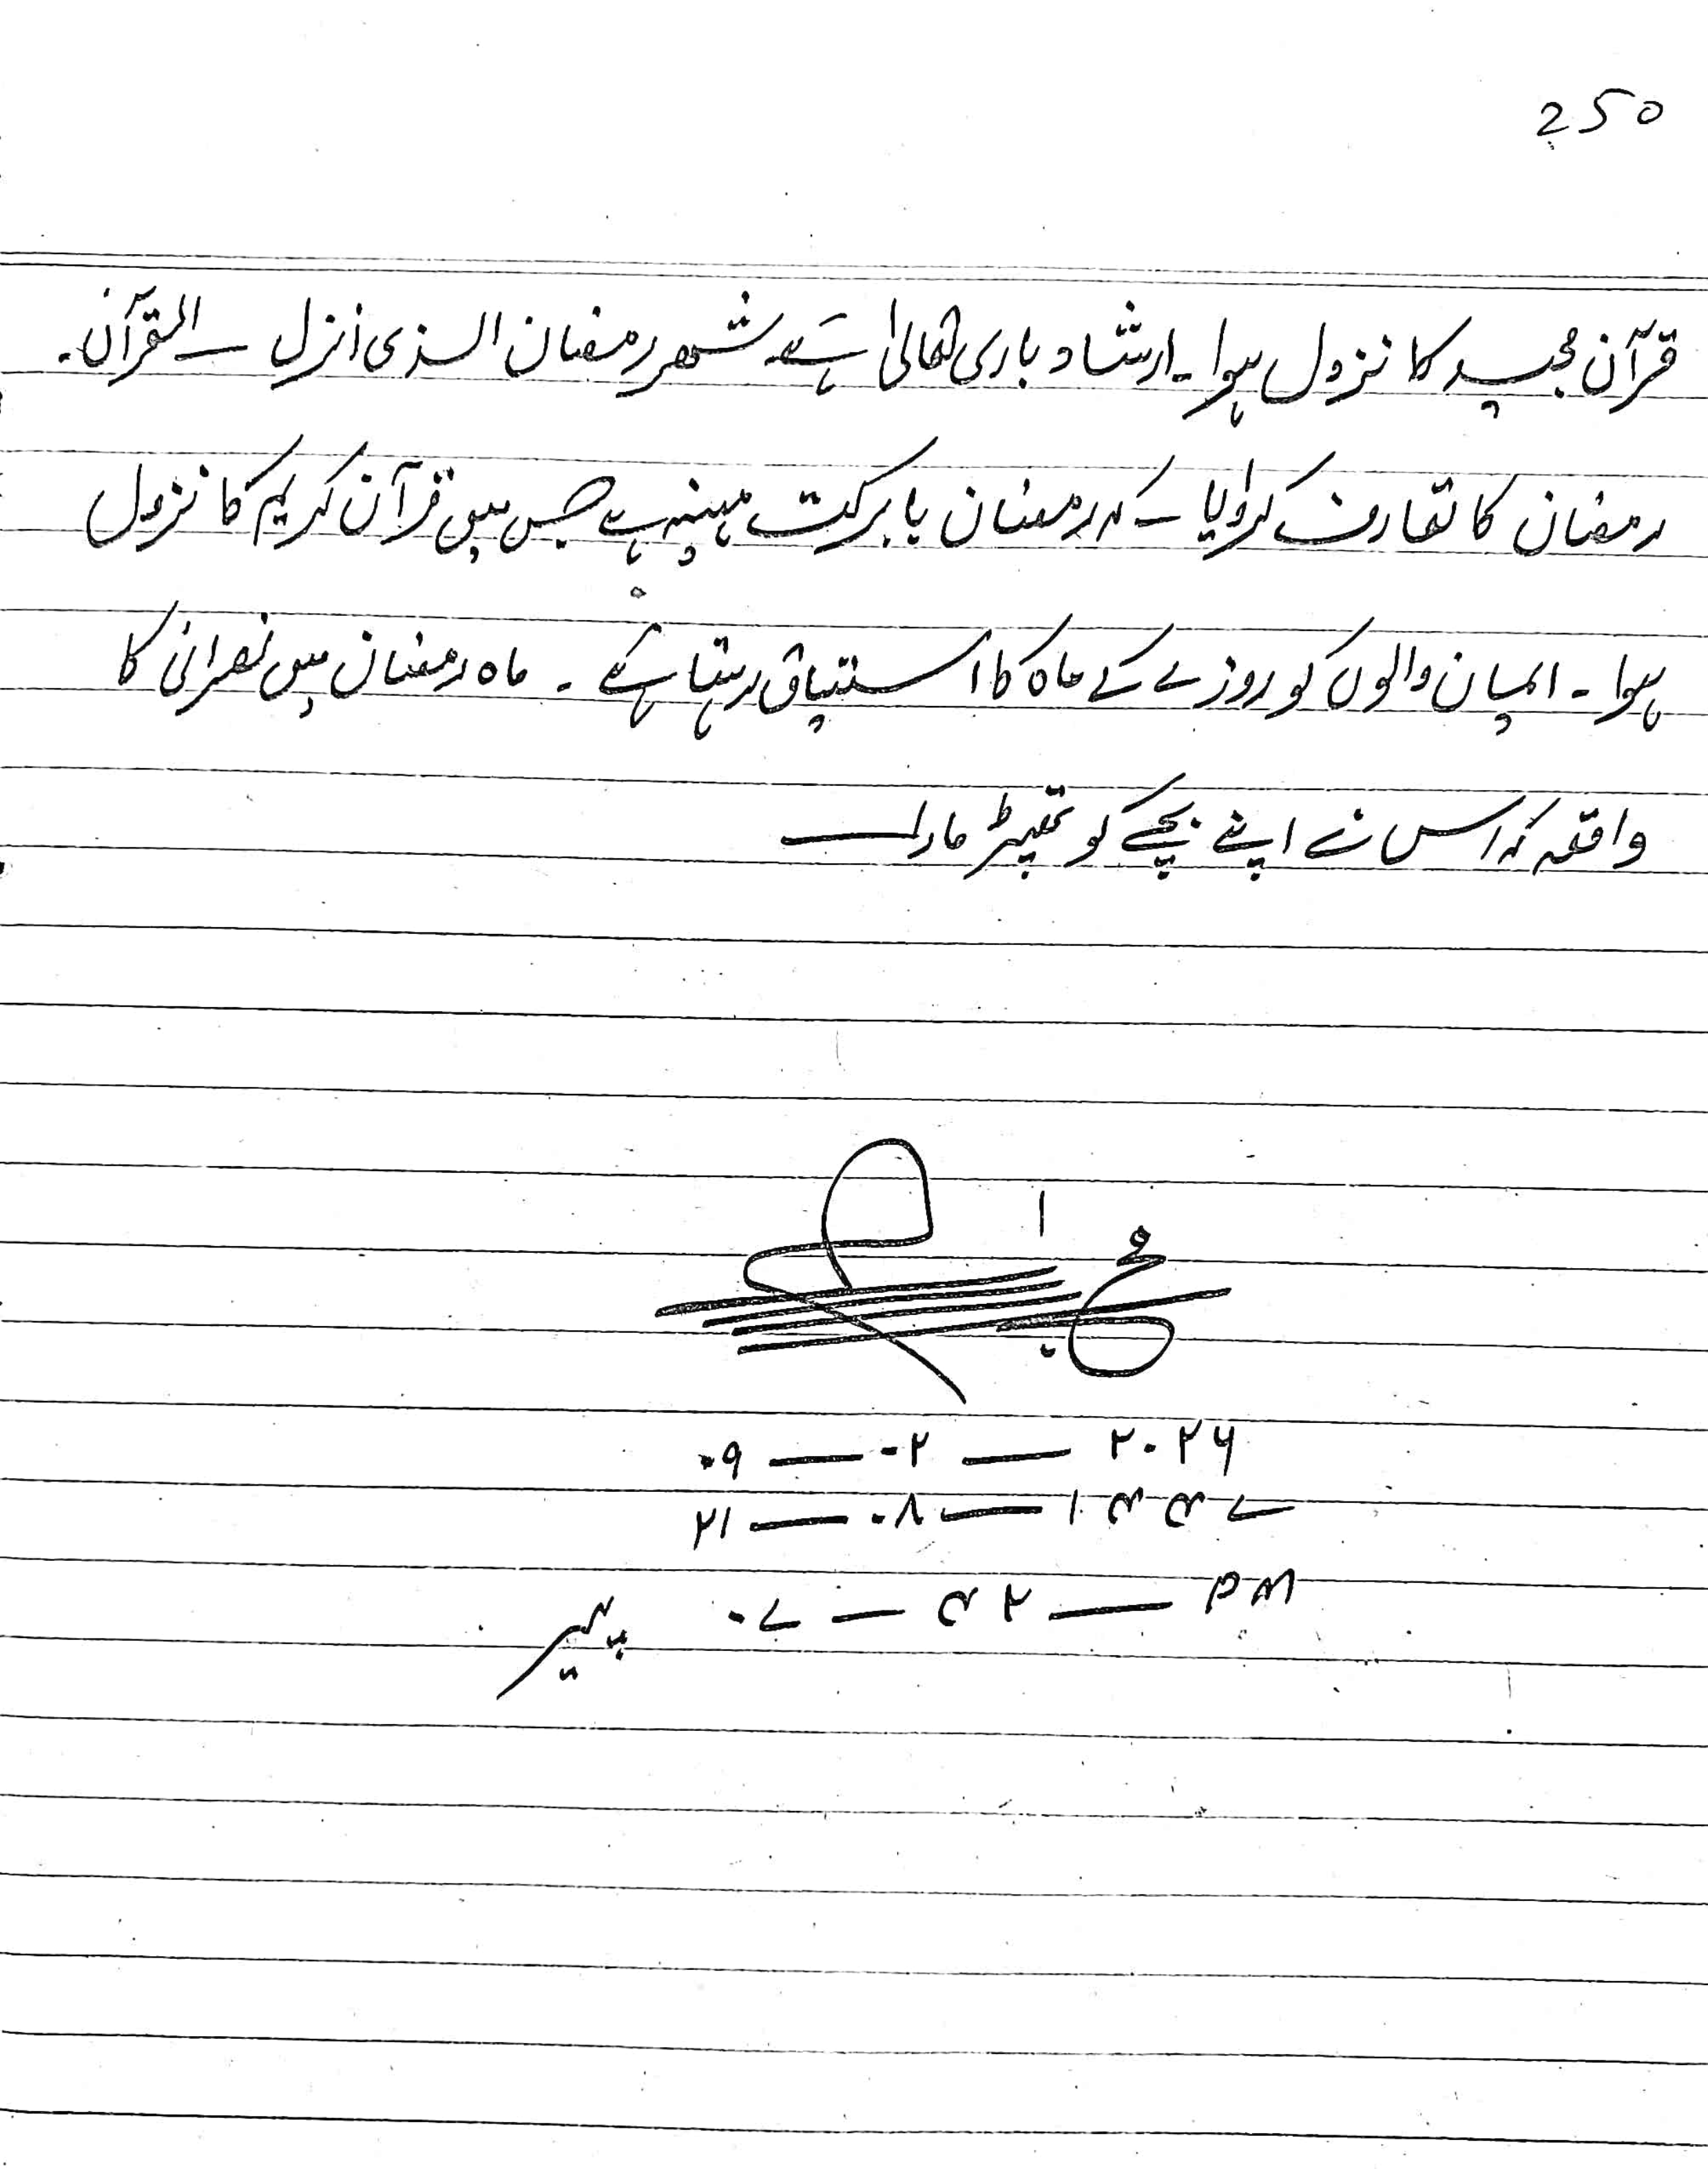 250
قرآن مجید کا نزول ہوا۔ ارشاد باری تعالیٰ ہے شھر رمضان الذی انزل — القرآن۔
رمضان کا تعارف کروایا کہ رمضان بابرکت مہینہ ہے جس میں قرآن کریم کا نزول
ہوا۔ ایمان والوں کو روزے کے ماہ کا اشتیاق رہتا ہے۔ ماہ رمضان میں نصرانی کا
واقعہ کہ اس نے اپنے بچے کو تھپڑ مارا —
۰۹ — ۰۲ — ۲۰۲۶
۲۱ — ۰۸ — ۱۴۴۷
۰۷ — ۴۲ — PM